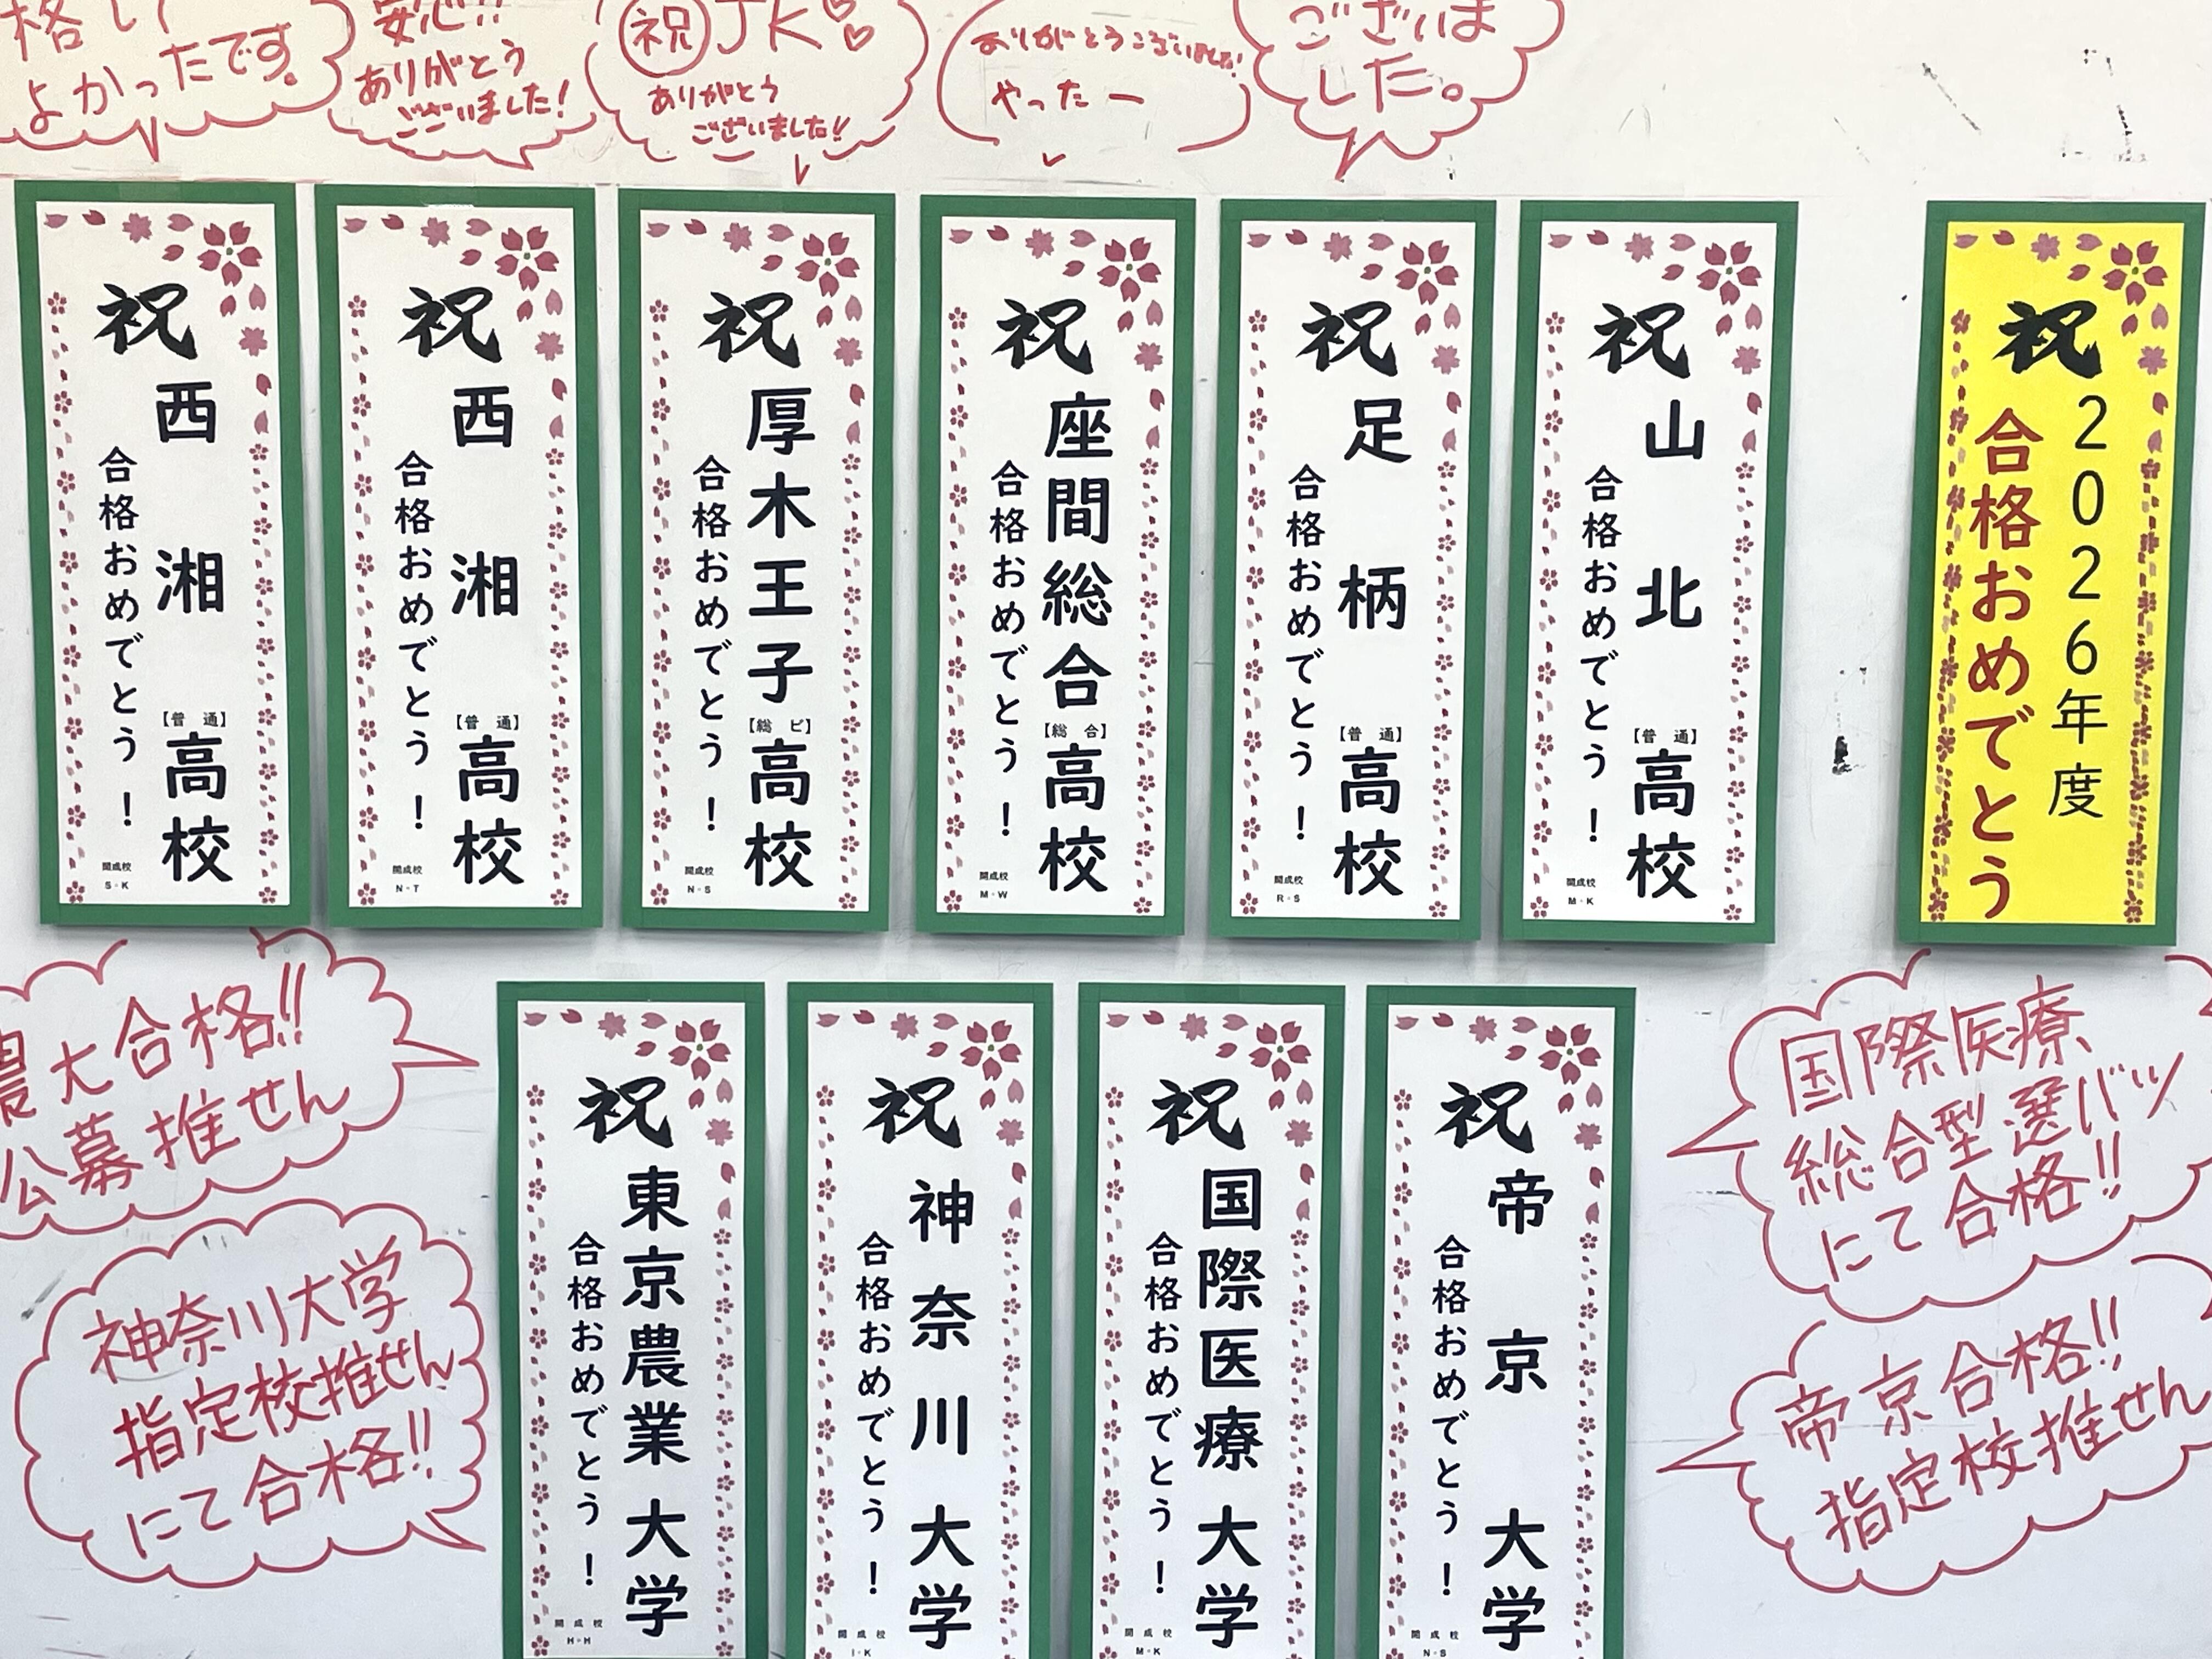 格して
よかったです。
安心!!
ありがとう
ございました!
祝 JK
ありがとう
ございました!!
ありがとうございました!
やったー
ございま
した。
祝
2026年度
合格おめでとう
祝
山北【普通】高校
合格おめでとう!
開成校
M・K
祝
足柄【普通】高校
合格おめでとう!
開成校
R・S
祝
座間総合【総合】高校
合格おめでとう!
開成校
M・W
祝
厚木王子【総ビ】高校
合格おめでとう!
開成校
N・S
祝
西湘【普通】高校
合格おめでとう!
開成校
N・T
祝
西湘【普通】高校
合格おめでとう!
開成校
S・K
国際医療
総合型選バツ
にて合格!!
帝京合格!!
指定校推せん
祝
帝京大学
合格おめでとう!
開成校
N・S
祝
国際医療大学
合格おめでとう!
開成校
M・K
祝
神奈川大学
合格おめでとう!
開成校
I・K
祝
東京農業大学
合格おめでとう!
開成校
H・H
農大合格!!
公募推せん
神奈川大学
指定校推せん
にて合格!!